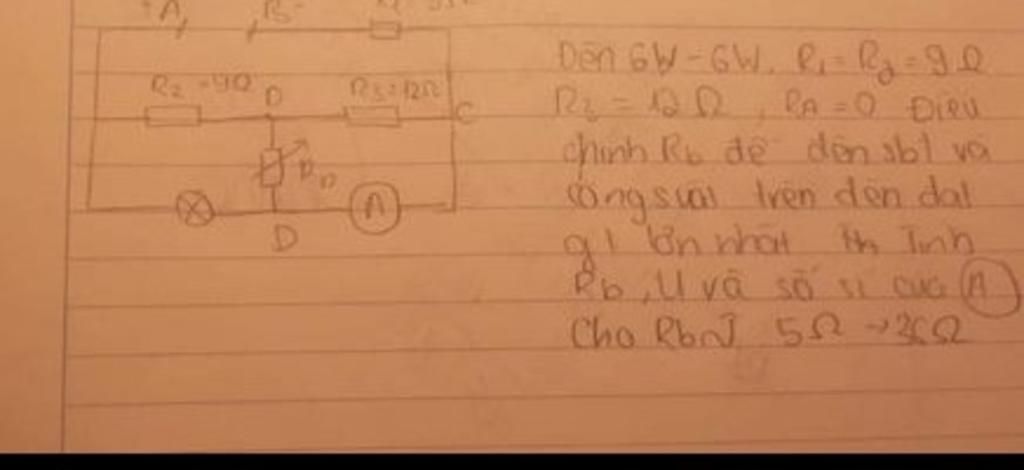 R2 = 9Ω D R3=12Ω
C
A
D
Đèn 6W-6W. R1=R2=9Ω
R3 = 12Ω, RA=0 Điều
chỉnh Rb để đèn sbt và
công suất trên đèn đạt
gt lớn nhất th Tính
Rb, U và số sỉ của A
Cho Rb 5Ω →